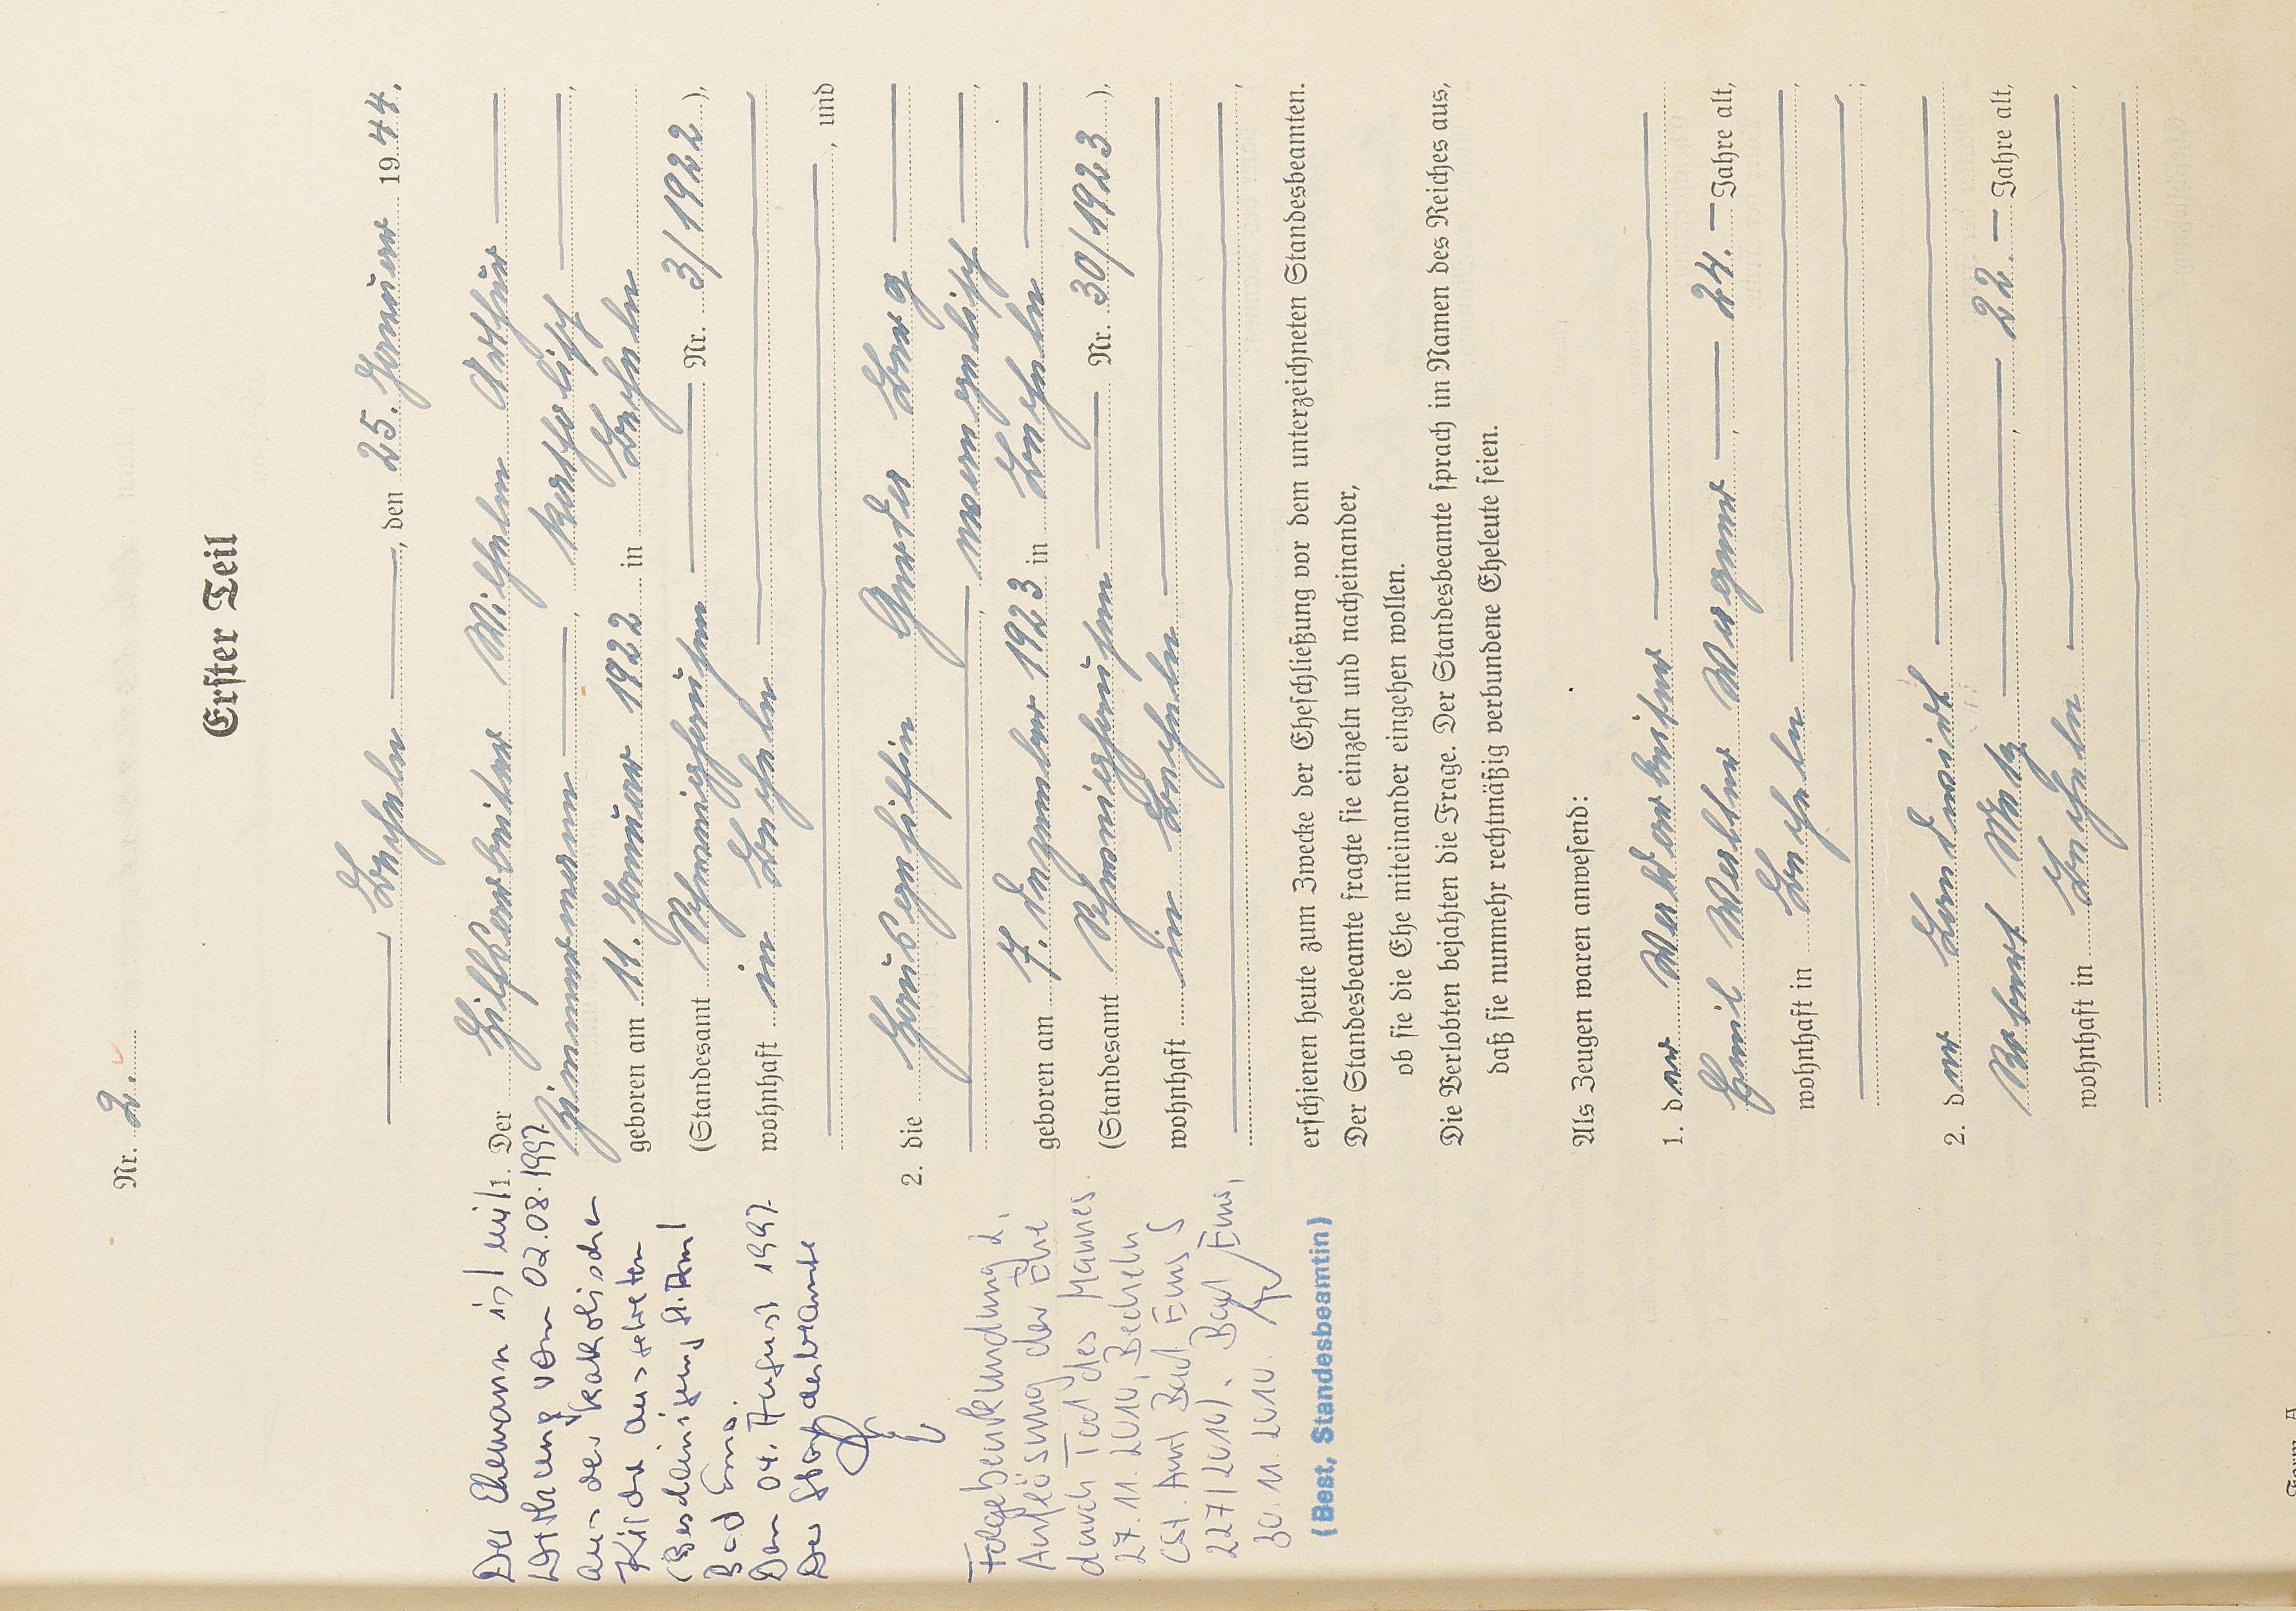 Nr. 2.
Erster Teil
Becheln, den 25. Januar 1944.
1. Der Hilfsarbeiter Wilhelm Arthur
Zimmermann, katholisch,
geboren am 11. Januar 1922 in Becheln
(Standesamt Schweighausen Nr. 3/1922),
wohnhaft in Becheln
, und
2. die Hausgehilfin Gerda Berg
, evangelisch,
geboren am 7. Dezember 1923 in Becheln
(Standesamt Schweighausen Nr. 30/1923),
wohnhaft in Becheln
,
erschienen heute zum Zwecke der Eheschließung vor dem unterzeichneten Standesbeamten.
Der Standesbeamte fragte sie einzeln und nacheinander,
ob sie die Ehe miteinander eingehen wollen.
Die Verlobten bejahten die Frage. Der Standesbeamte sprach im Namen des Reiches aus,
daß sie nunmehr rechtmäßig verbundene Eheleute seien.
Als Zeugen waren anwesend:
1. der Waldarbeiter
Emil Walter Wagner, 24. Jahre alt,
wohnhaft in Becheln,
;
2. der Landwirt
Robert Metz, 22. Jahre alt,
wohnhaft in Becheln,
Der Ehemann ist mit
Wirkung vom 02.08.1997
aus der katholischen
Kirche ausgetreten
(Bescheinigung St.Amt
Bad Ems).
Den 04. August 1997
Der Standesbeamte
Folgebeurkundung d.
Auflösung der Ehe
durch Tod des Mannes.
27.11.2010, Becheln
(St. Amt Bad Ems S
227/2010). Bad Ems,
30.11.2010.
(Best, Standesbeamtin)